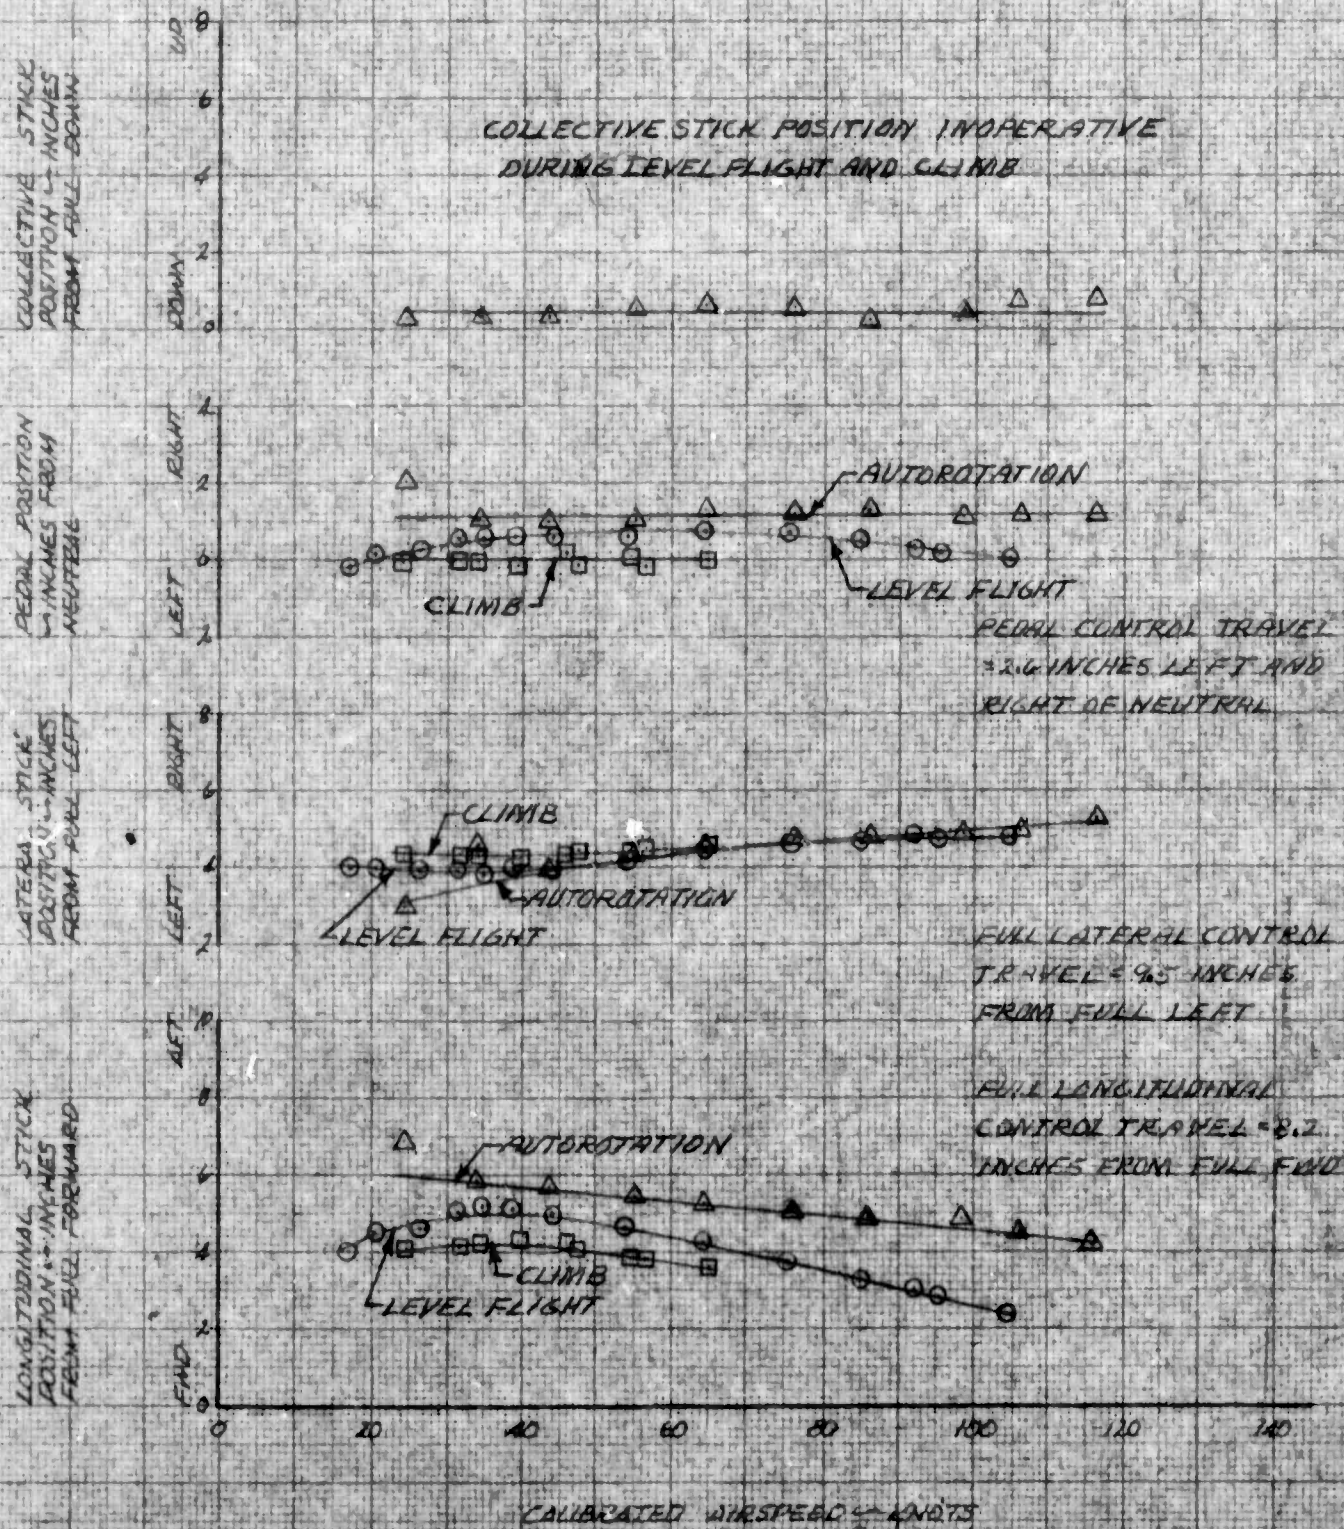 COLLECTIVE STICK
POSITION ~ INCHES
FROM FULL DOWN
UP
DOWN
8
6
4
2
0
COLLECTIVE STICK POSITION INOPERATIVE
DURING LEVEL FLIGHT AND CLIMB
PEDAL POSITION
~ INCHES FROM
NEUTRAL
RIGHT
LEFT
4
2
0
2
AUTOROTATION
LEVEL FLIGHT
CLIMB
PEDAL CONTROL TRAVEL
=2.6 INCHES LEFT AND
RIGHT OF NEUTRAL
LATERAL STICK
POSITION ~ INCHES
FROM FULL LEFT
RIGHT
LEFT
8
6
4
2
CLIMB
AUTOROTATION
LEVEL FLIGHT
FULL LATERAL CONTROL
TRAVEL = 9.5 INCHES
FROM FULL LEFT
LONGITUDINAL STICK
POSITION ~ INCHES
FROM FULL FORWARD
AFT
FWD
10
8
6
4
2
0
FULL LONGITUDINAL
CONTROL TRAVEL = 8.2
INCHES FROM FULL FWD
AUTOROTATION
CLIMB
LEVEL FLIGHT
0 20 40 60 80 100 120 140
CALIBRATED AIRSPEED ~ KNOTS